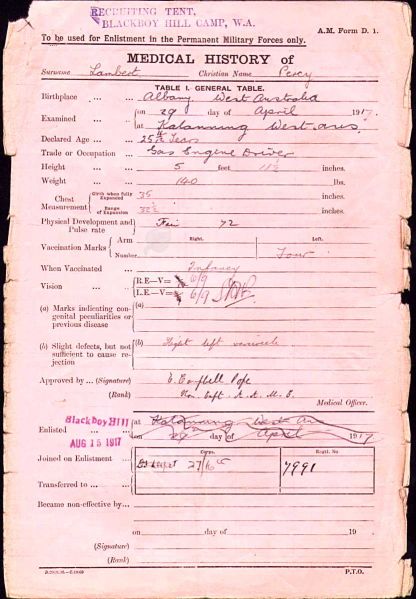 RECRUITING TENT,
BLACKBOY HILL CAMP, W.A.
A.M. Form D. 1.
To be used for Enlistment in the Permanent Military Forces only.
MEDICAL HISTORY of
Surname Lambert Christian Name Percy
TABLE I. GENERAL TABLE.
Birthplace ... ... Albany West Australia
Examined ... ... {on 29 day of April 1917
at Katanning West Aus
Declared Age ... ... 25 Years
Trade or Occupation ... Gas Engine Driver
Height ... ... 5 feet 11½ inches.
Weight ... ... 140 lbs.
Chest Measurement {Girth when fully Expanded 35 inches.
Range of Expansion 32½ inches.
Physical Development and Pulse rate ... Fair 72
Vaccination Marks {Arm ... Right. Left.
Number Four
When Vaccinated ... Infancy
Vision ... ... {R.E.—V= 6/9
L.E.—V= 6/9
(a) Marks indicating congenital peculiarities or previous disease {(a)
(b) Slight defects, but not sufficient to cause rejection {(b) Slight left varicocele
Approved by ... (Signature) Campbell Pope
(Rank) Hon. Capt. A. A. M. C.
Medical Officer.
Blackboy Hill
AUG 15 1917
Enlisted ... {at Katanning West Aus
on 29 day of April 1917
Corps. Regtl. No
Joined on Enlistment ... 27/16 7991
Transferred to ... ...
Became non-effective by...
on day of 19
(Signature)
(Rank)
P.T.O.